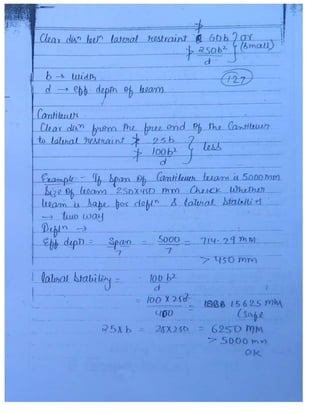 Clear disⁿ betⁿ lateral restraint ≯ 60b } or
≯ 250b²/d } (small)
b → width
(127)
d → eff depth of beam
Cantilever
Clear disⁿ from the free end of the Cantilever
to lateral restraint ≯ 25b }
≯ 100b²/d } less
Example - If span of Cantilever beam is 5000mm
Size of beam 250x450 mm Check whether
beam is safe for deflⁿ & lateral stability
→ two way
Deflⁿ →
Eff depth = Span/7 = 5000/7 = 714.29 mm
> 450 mm
lateral stability = 100 b²/d
= 100 x 250²/400 = 15625 mm
(safe
25xb = 25x250 = 6250 mm
> 5000 mm
OK